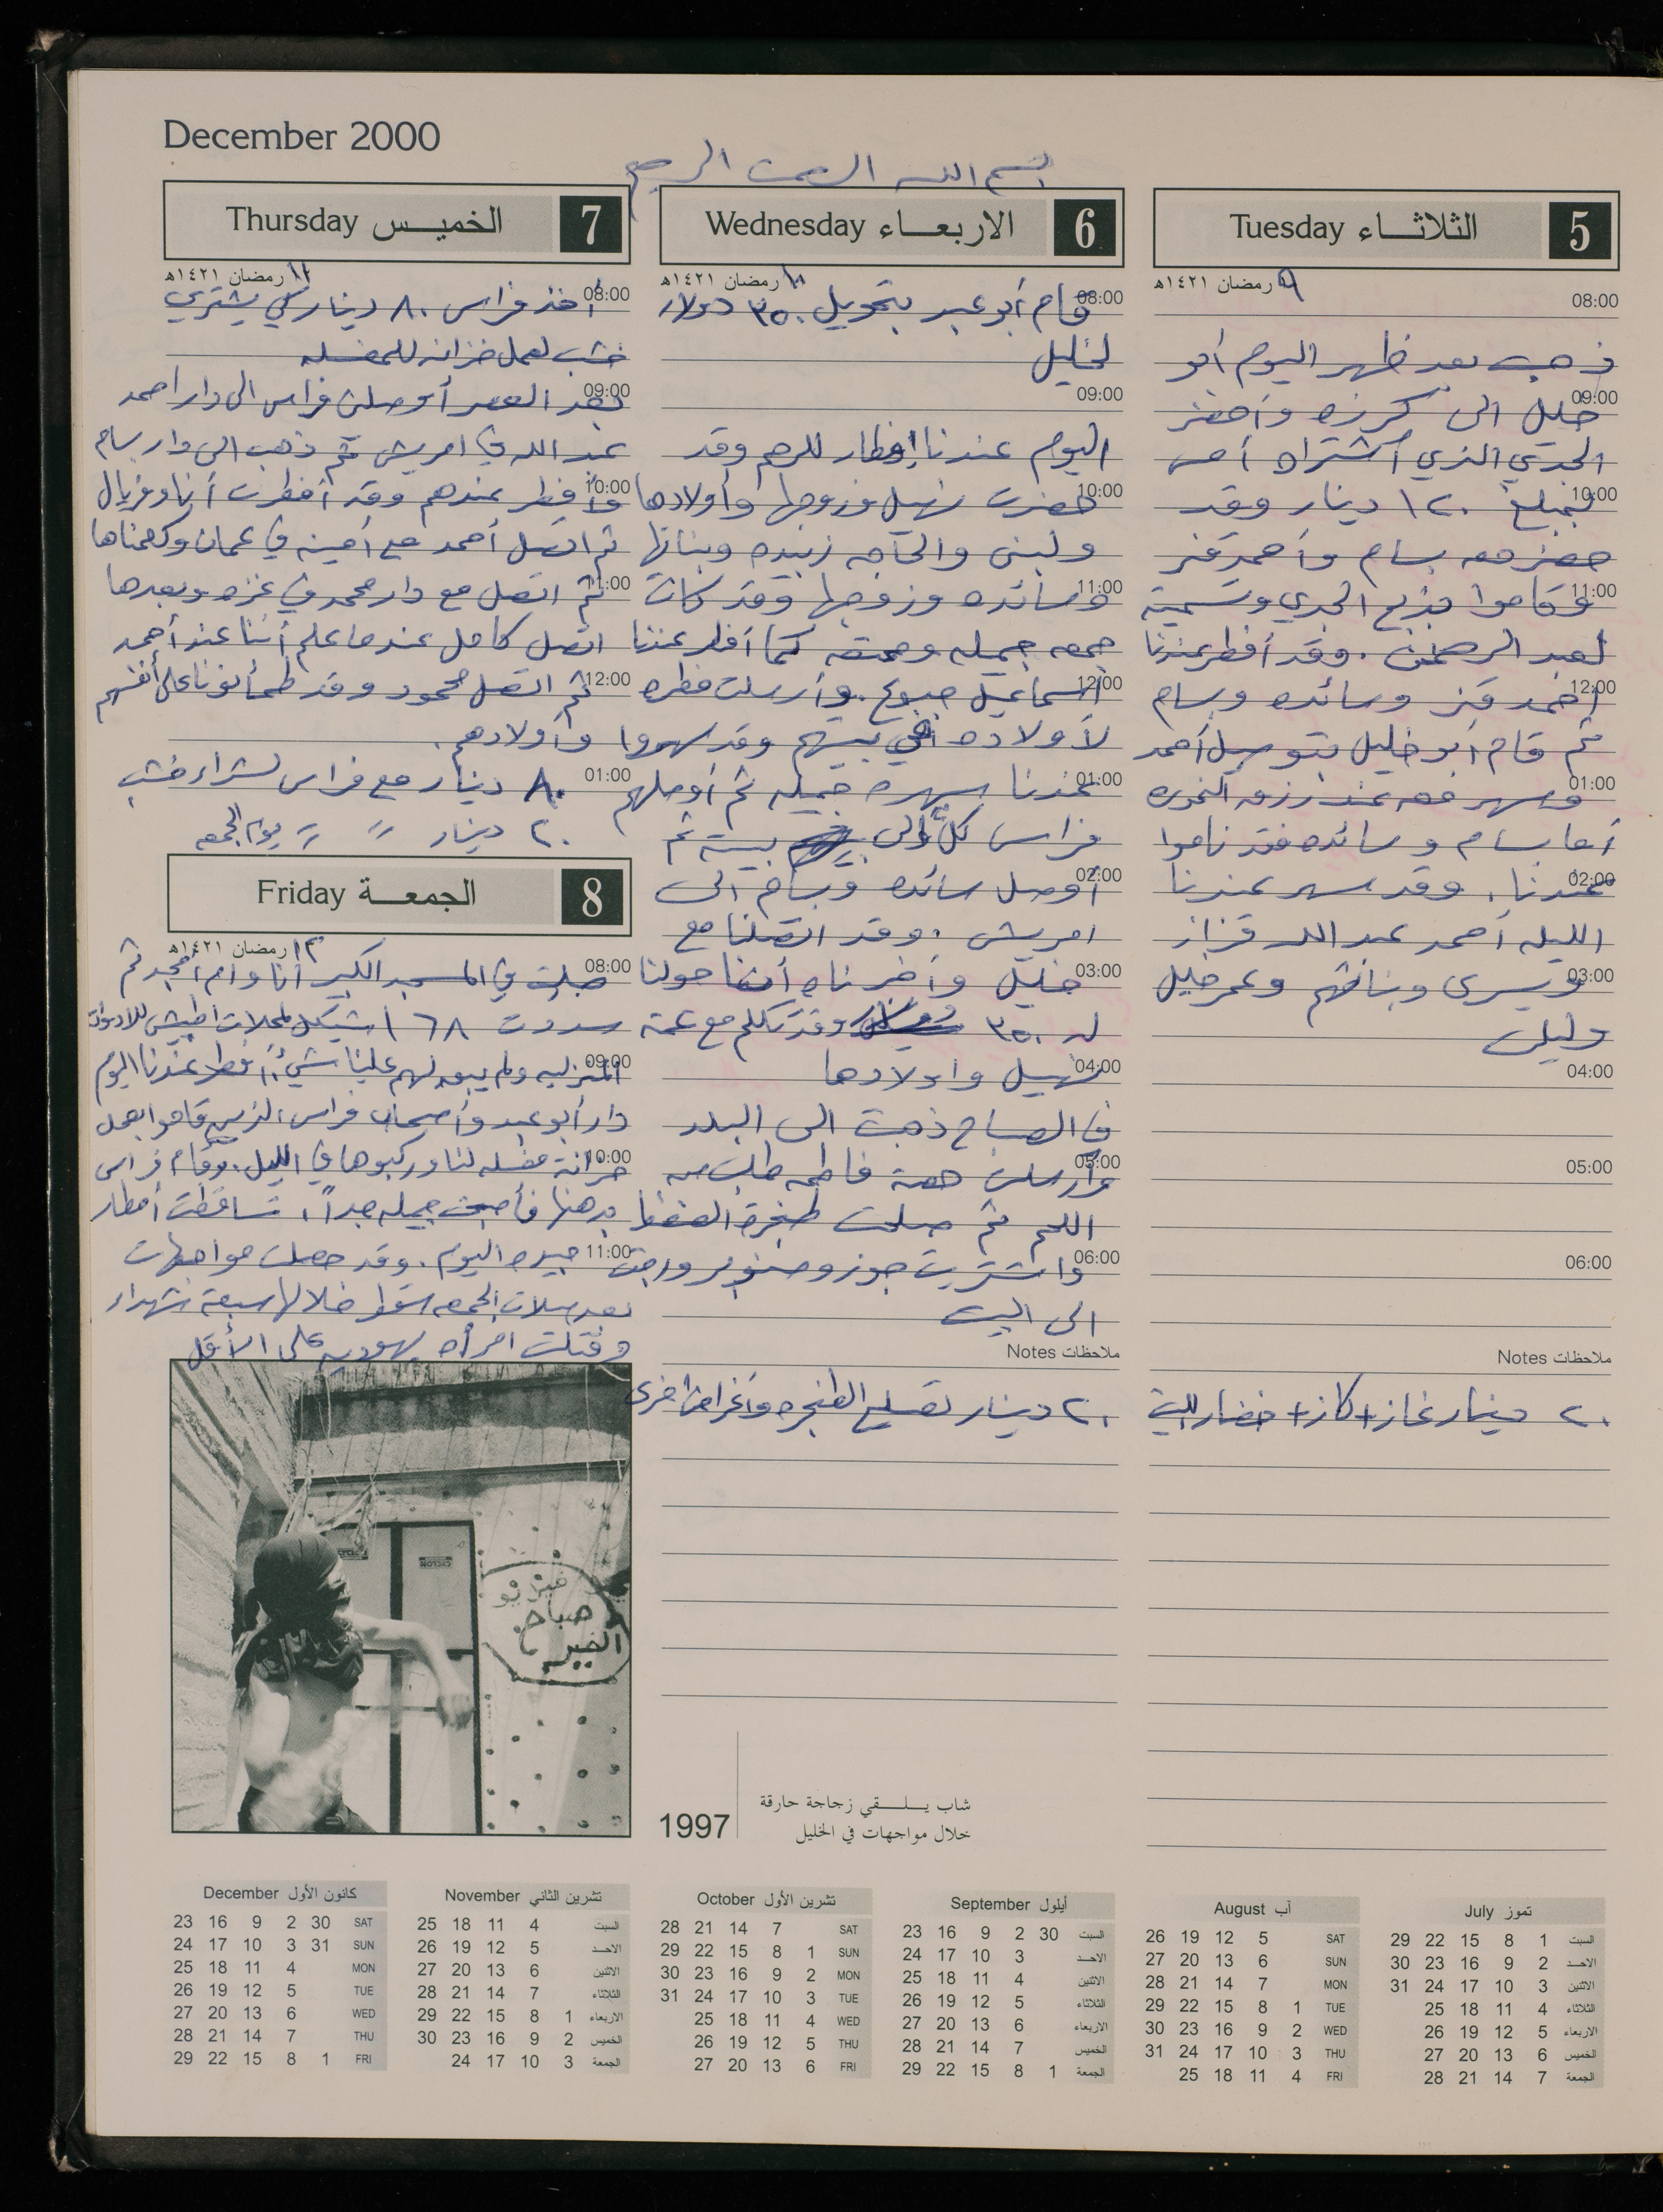 December 2000
بسم الله الرحمن الرحيم
5 الثلاثاء Tuesday
٩ رمضان ١٤٢١هـ
08:00
ذهب بعد ظهر اليوم أبو
09:00
خليل الى كرزه وأحضر
الجدي الذي اشتراه أمس
10:00
بمبلغ ١٢٠ دينار وقد
حضر معه بسام وأحمد قنز
11:00
وقاموا بذبح الجدي وتسمية
لعبد الرحمن . وقد أفطر عندنا
12:00
أحمد قنز وسائده وبسام
ثم قام أبو خليل بتوصيل أحمد
01:00
وسهر معه عند رزق
أما بسام وسائده فقد ناموا
02:00
عندنا . وقد سهر عندنا
الليله أحمد عبد الله قزاز
03:00
ويسرى وبناتهم وعمر خليل
وليلى
04:00
05:00
06:00
ملاحظات Notes
٢٠ دينار غاز + كاز + خضار للبيت
6 الاربعاء Wednesday
١٠ رمضان ١٤٢١هـ
08:00
قام أبو عبد بتحويل ٣٥٠ دولار
لخليل
09:00
اليوم عندنا إفطار للرحم وقد
10:00
حضرت نهيل وزوجها وأولادها
ولبنى والحاجه زبيده وبناتها
11:00
وسائده وزوجها وقد كانت
جمعه جميله وممتعه كما أفطر عندنا
12:00
اسماعيل صبوح . وأرسلت فطره
لأولاده في بيتهم وقد سهروا
01:00
عندنا سهره جميله ثم أوصلهم
فراس كلٌ الى بيته ثم
02:00
أوصل سائده وبسام الى
امريش . وقد اتصلنا مع
03:00
خليل وأخبرناه أننا حولنا
له ٣٥٠ وقد تكلم مع عمة
04:00
نهيل واولادها
في الصباح ذهبت الى البلد
05:00
وأرسلت همة فاطمه طلب
اللحم ثم صلحت طنجرة الضغط
06:00
واشتريت جوز وصنوبر ورجعت
الى البيت
ملاحظات Notes
٢٠ دينار تصليح الطنجره وأغراض اخرى
7 الخميس Thursday
١١ رمضان ١٤٢١هـ
08:00
أخذ فراس ٨٠ دينار لكي يشتري
خشب لعمل خزانه للمغسله
09:00
بعد العصر أوصلنا فراس الى دار احمد
عبد الله في امريش ثم ذهب الى دار بسام
10:00
وأفطر عندهم وقد أفطرت أنا وفريال
ثم اتصل أحمد مع أمينه في عمان وكلمناها
11:00
ثم اتصل مع دار محمد في غزه وبعدها
اتصل كامل عندما علم أننا عند أحمد
12:00
ثم اتصل محمود وقد طمأنونا على أنفسهم
وأولادهم .
01:00
٨٠ دينار مع فراس لشراء خشب
٢٠ دينار " " يوم الجمعه
8 الجمعة Friday
١٢ رمضان ١٤٢١هـ
08:00
صليت في المسجد الكبير أنا وام أمجد ثم
سددت ١٦٨ شيكل لمحلات اطبيش للادوات
09:00
المنزليه ولم يبق لهم علينا شيء . أفطر عندنا اليوم
دار أبو عبد وأصحاب فراس الذين قاموا بعمل
10:00
خزانة مغسله لنا وركبوها في الليل . وقام فراس
بدهنها فأصبحت جميله جداً . تساقطت أمطار
11:00
جيده اليوم . وقد حصلت مواجهات
بعد صلات الجمعه سقط خلالها سبعة شهداء
وقتلت امرأه يهوديه على الأقل
صباح
الخير
1997
شاب يلقي زجاجة حارقة
خلال مواجهات في الخليل
تموز July
السبت 1 8 15 22 29
الاحد 2 9 16 23 30
الاثنين 3 10 17 24 31
الثلاثاء 4 11 18 25
الاربعاء 5 12 19 26
الخميس 6 13 20 27
الجمعة 7 14 21 28
آب August
SAT 5 12 19 26
SUN 6 13 20 27
MON 7 14 21 28
TUE 1 8 15 22 29
WED 2 9 16 23 30
THU 3 10 17 24 31
FRI 4 11 18 25
أيلول September
السبت 30 2 9 16 23
الاحد 3 10 17 24
الاثنين 4 11 18 25
الثلاثاء 5 12 19 26
الاربعاء 6 13 20 27
الخميس 7 14 21 28
الجمعة 1 8 15 22 29
تشرين الأول October
SAT 7 14 21 28
SUN 1 8 15 22 29
MON 2 9 16 23 30
TUE 3 10 17 24 31
WED 4 11 18 25
THU 5 12 19 26
FRI 6 13 20 27
تشرين الثاني November
السبت 4 11 18 25
الاحد 5 12 19 26
الاثنين 6 13 20 27
الثلاثاء 7 14 21 28
الاربعاء 1 8 15 22 29
الخميس 2 9 16 23 30
الجمعة 3 10 17 24
كانون الأول December
SAT 30 2 9 16 23
SUN 31 3 10 17 24
MON 4 11 18 25
TUE 5 12 19 26
WED 6 13 20 27
THU 7 14 21 28
FRI 1 8 15 22 29